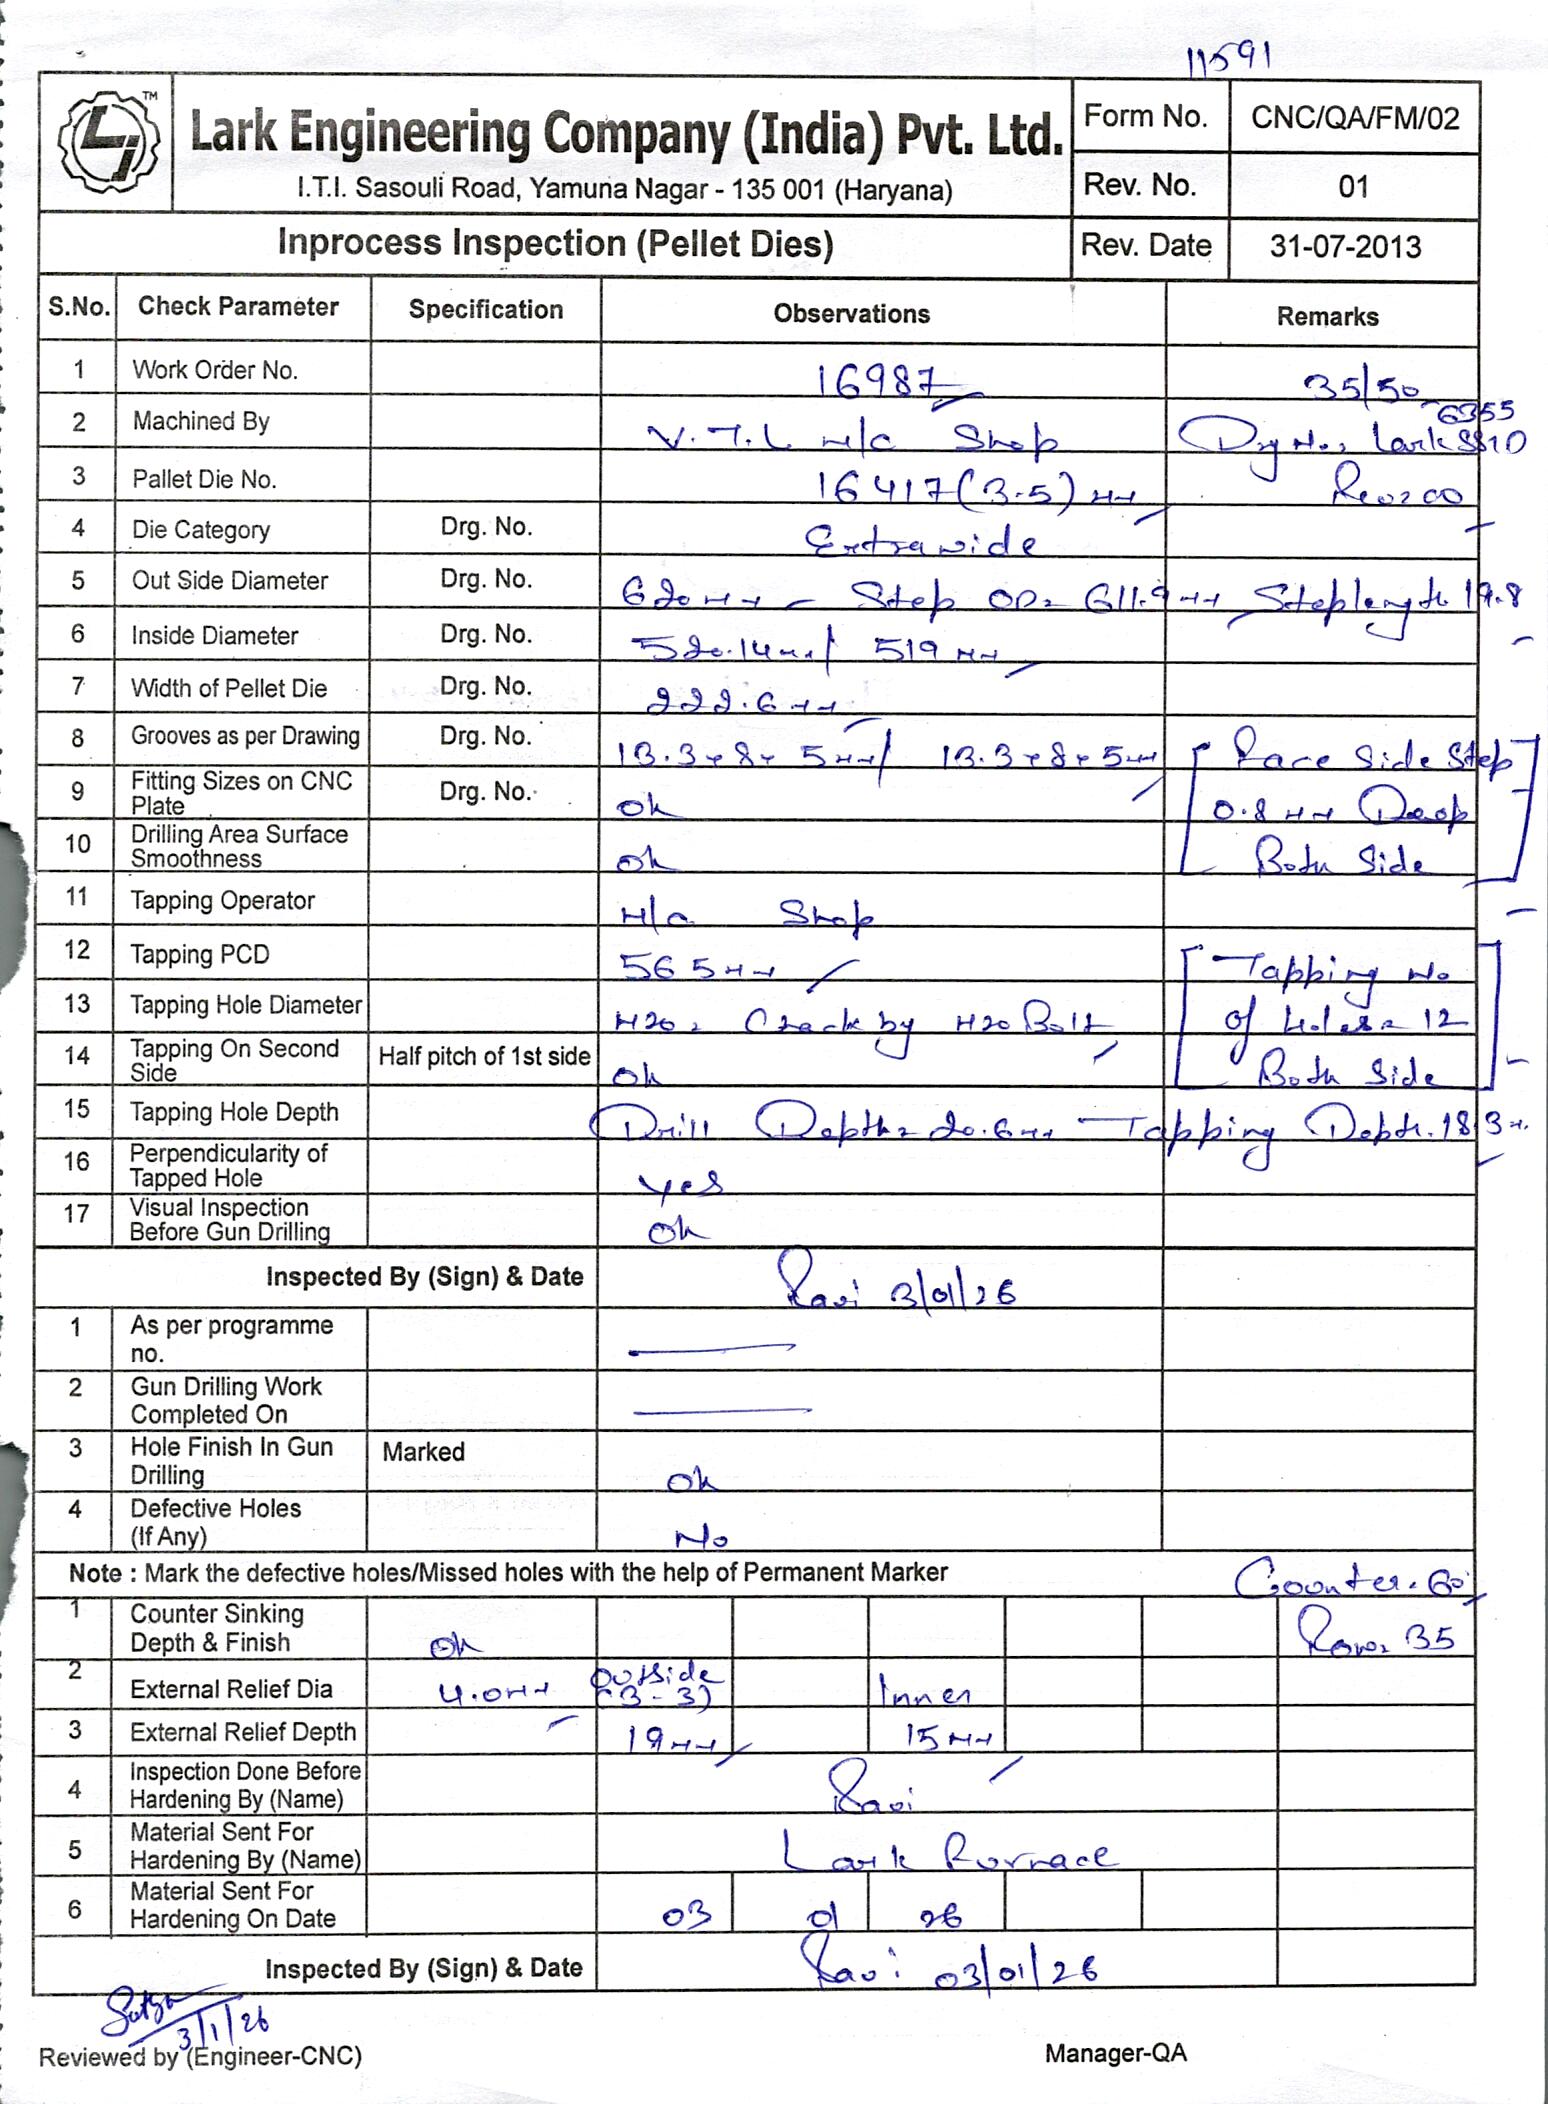 11591
TM
Lark Engineering Company (India) Pvt. Ltd.
I.T.I. Sasouli Road, Yamuna Nagar - 135 001 (Haryana)
Form No. CNC/QA/FM/02
Rev. No. 01
Inprocess Inspection (Pellet Dies) Rev. Date 31-07-2013
S.No. Check Parameter Specification Observations Remarks
1 Work Order No. 16987 35/50
2 Machined By V.T.L M/c Shop Drg No. Lark 6355 SS10
3 Pallet Die No. 16417 (3.5) mm Rev: 00
4 Die Category Drg. No. Extrawide
5 Out Side Diameter Drg. No. 620mm - Step OD= 611.9mm Step length 19.8
6 Inside Diameter Drg. No. 520.14mm/ 519 mm
7 Width of Pellet Die Drg. No. 222.6mm
8 Grooves as per Drawing Drg. No. 13.3x8x5mm/ 13.3x8x5mm Race Side Step
9 Fitting Sizes on CNC Plate Drg. No. Ok 0.8mm Deep
10 Drilling Area Surface Smoothness Ok Both Side
11 Tapping Operator M/c Shop
12 Tapping PCD 565mm Tapping No
13 Tapping Hole Diameter M20= Check by M20 Bolt of Holes= 12
14 Tapping On Second Side Half pitch of 1st side Ok Both Side
15 Tapping Hole Depth Drill Depth= 20.6mm Tapping Depth. 18.3m.
16 Perpendicularity of Tapped Hole Yes
17 Visual Inspection Before Gun Drilling Ok
Inspected By (Sign) & Date Ravi 3/01/26
1 As per programme no.
2 Gun Drilling Work Completed On
3 Hole Finish In Gun Drilling Marked Ok
4 Defective Holes (If Any) No
Note : Mark the defective holes/Missed holes with the help of Permanent Marker Counter. 60°
1 Counter Sinking Depth & Finish Ok Row= 35
2 External Relief Dia 4.0mm Outside (3-3) Inner
3 External Relief Depth 19mm 15mm
4 Inspection Done Before Hardening By (Name) Ravi
5 Material Sent For Hardening By (Name) Lark Furnace
6 Material Sent For Hardening On Date 03 01 26
Inspected By (Sign) & Date Ravi 03/01/26
3/1/26
Reviewed by (Engineer-CNC) Manager-QA